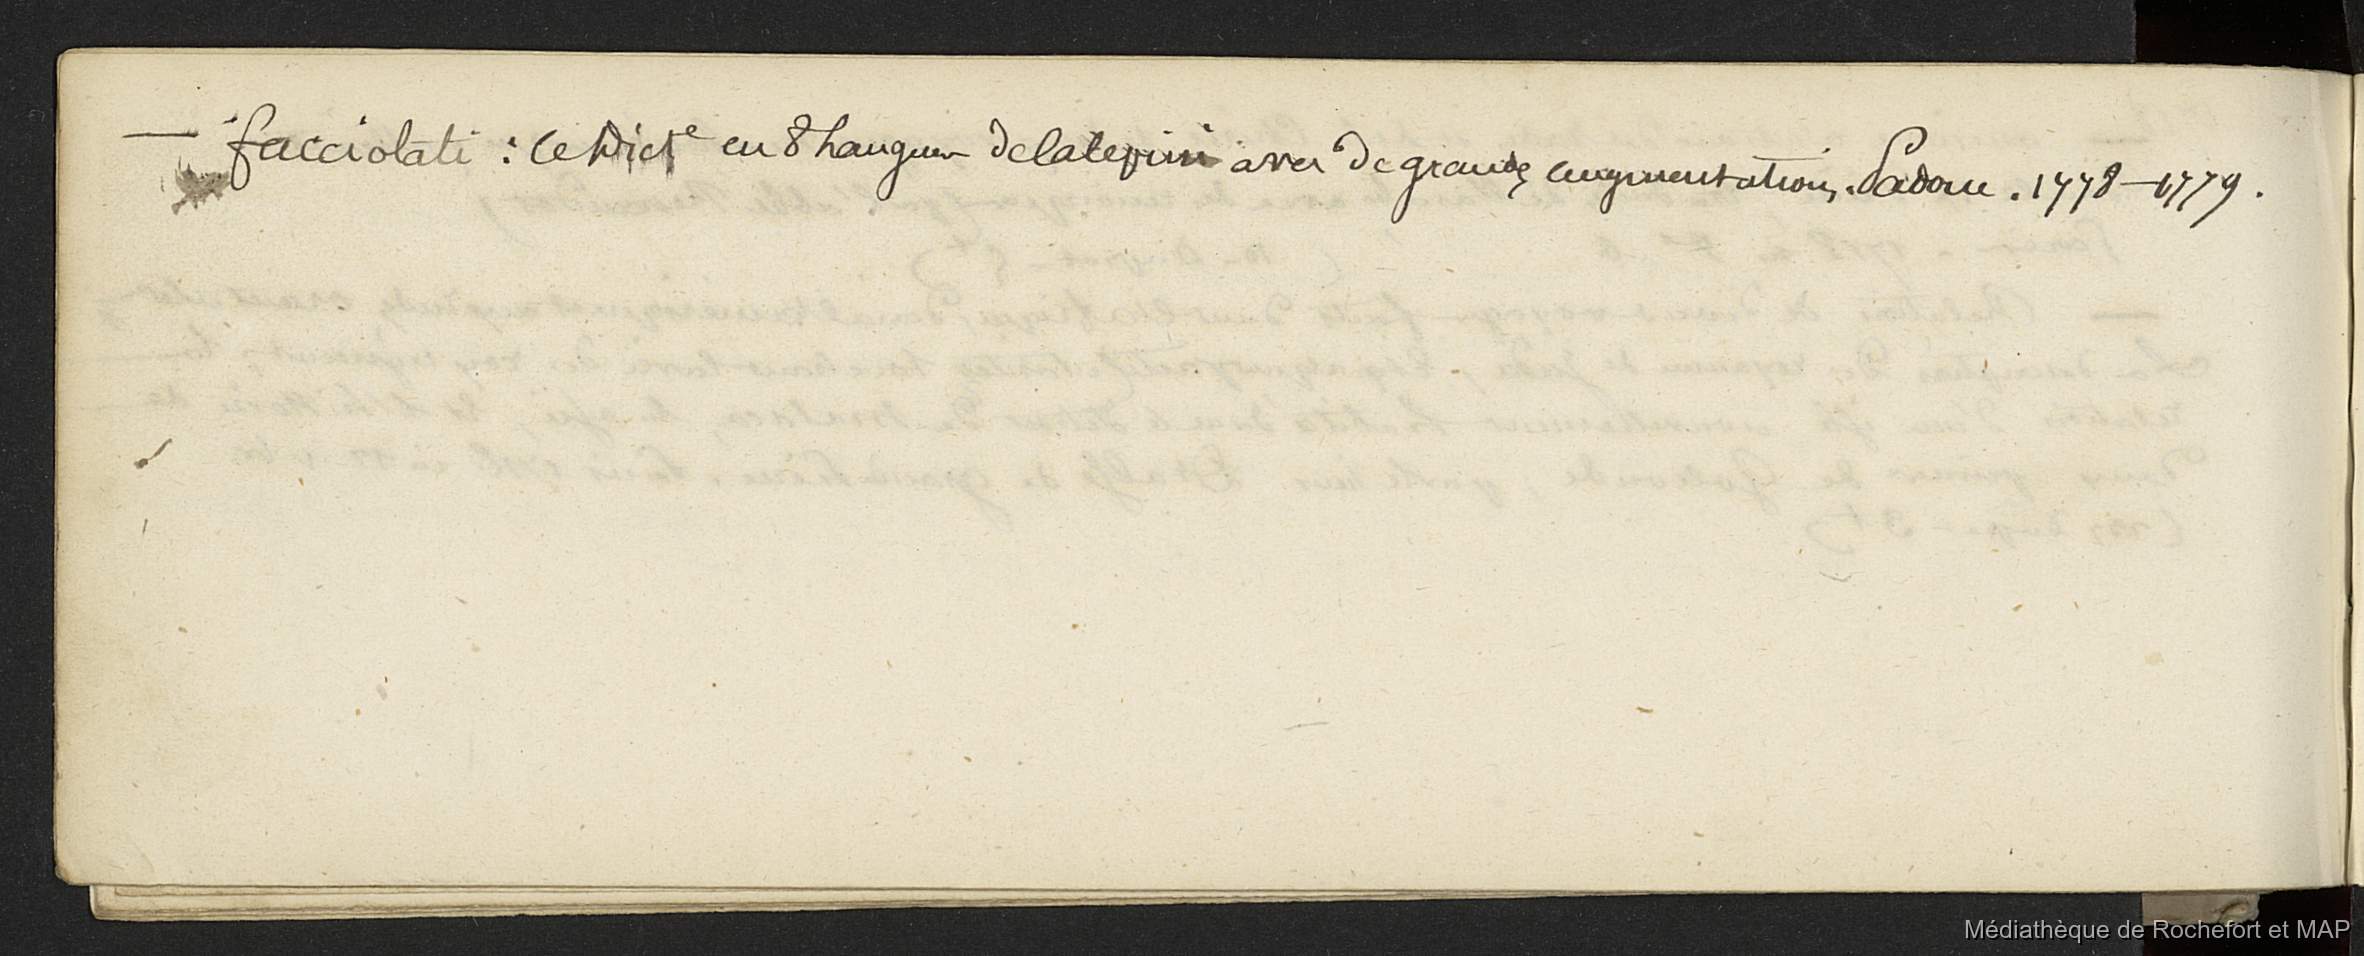 — facciolati : le Dict.e en 8 langues de Calepini avec de grandes augmentations. Padoue. 1778–1779.
Médiathèque de Rochefort et MAP